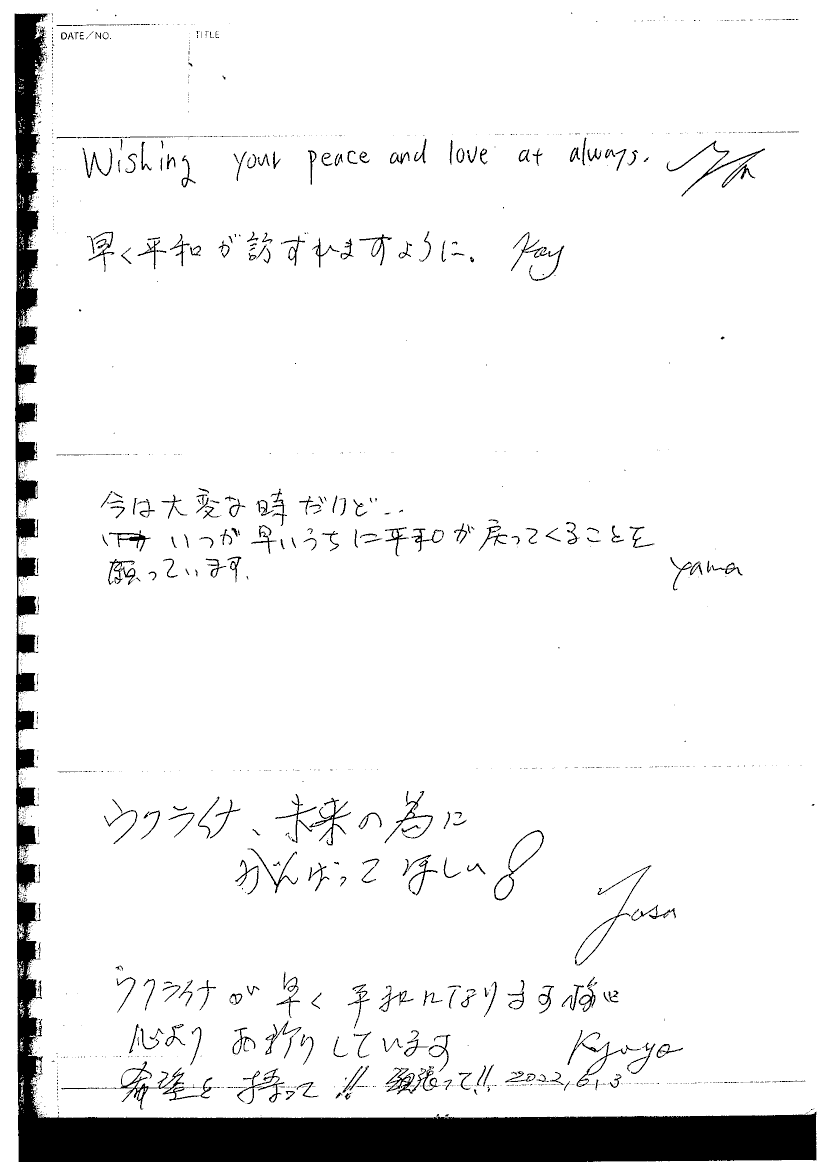 DATE/NO. TITLE
Wishing your peace and love at always.
早く平和が訪ずれますように。 Kay
今は大変な時だけど..
いつか早いうちに平和が戻ってくることを
願っています。
yama
ウクライナ、未来の為に
がんばってほしい!
ウクライナが早く平和になります様に
心よりお祈りしています Kyoyo
希望を持って!! 頑張って!! 2022,6,3